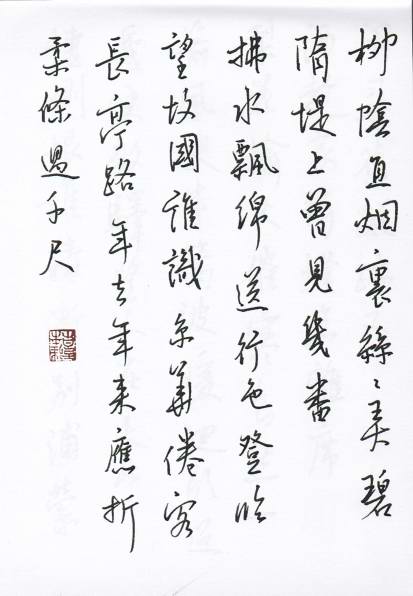 柳陰直烟裏絲〻弄碧
隋堤上曾見幾番
拂水飄綿送行色登臨
望故國誰識京華倦客
長亭路年去年來應折
柔條過千尺